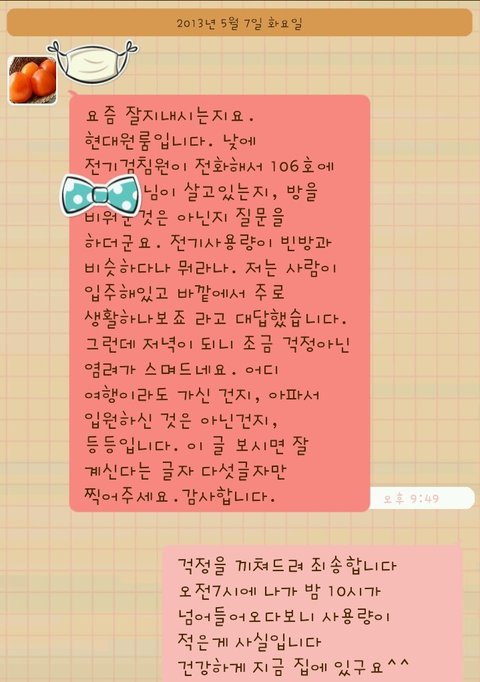 2013년 5월 7일 화요일
요즘 잘지내시는지요.
현대원룸입니다. 낮에
전기검침원이 전화해서 106호에
님이 살고있는지, 방을
비워둔것은 아닌지 질문을
하더군요. 전기사용량이 빈방과
비슷하다나 뭐라나. 저는 사람이
입주해있고 바깥에서 주로
생활하나보죠 라고 대답했습니다.
그런데 저녁이 되니 조금 걱정아닌
염려가 스며드네요. 어디
여행이라도 가신 건지, 아파서
입원하신 것은 아닌건지,
등등입니다. 이 글 보시면 잘
계신다는 글자 다섯글자만
찍어주세요.감사합니다.
오후 9:49
걱정을 끼쳐드려 죄송합니다
오전7시에 나가 밤 10시가
넘어들어오다보니 사용량이
적은게 사실입니다
건강하게 지금 집에 있구요^^